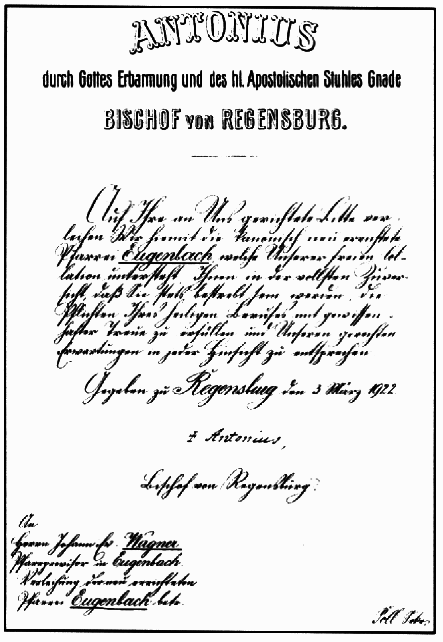 ANTONIUS
durch Gottes Erbarmung und des hl. Apostolischen Stuhles Gnade
BISCHOF VON REGENSBURG.
Auf Ihre an Uns gerichtete Bitte ver-
leihen Wir hiemit die kanonisch neu errichtete
Pfarrei Eugenbach, welche Unserer freien Col-
lation untersteht, Ihnen in der vollsten Zuver-
sicht, daß Sie stets bestrebt sein werden, die
Pflichten Ihres heiligen Berufes mit gewissen-
hafter Treue zu erfüllen und Unseren gerechten
Erwartungen in jeder Hinsicht zu entsprechen.
Gegeben zu Regensburg den 3 März 1922.
† Antonius,
Bischof von Regensburg.
An
Herrn Johann Ev. Wagner
Pfarrprovisor in Eugenbach
Verleihung der neu errichteten
Pfarrei Eugenbach betr.